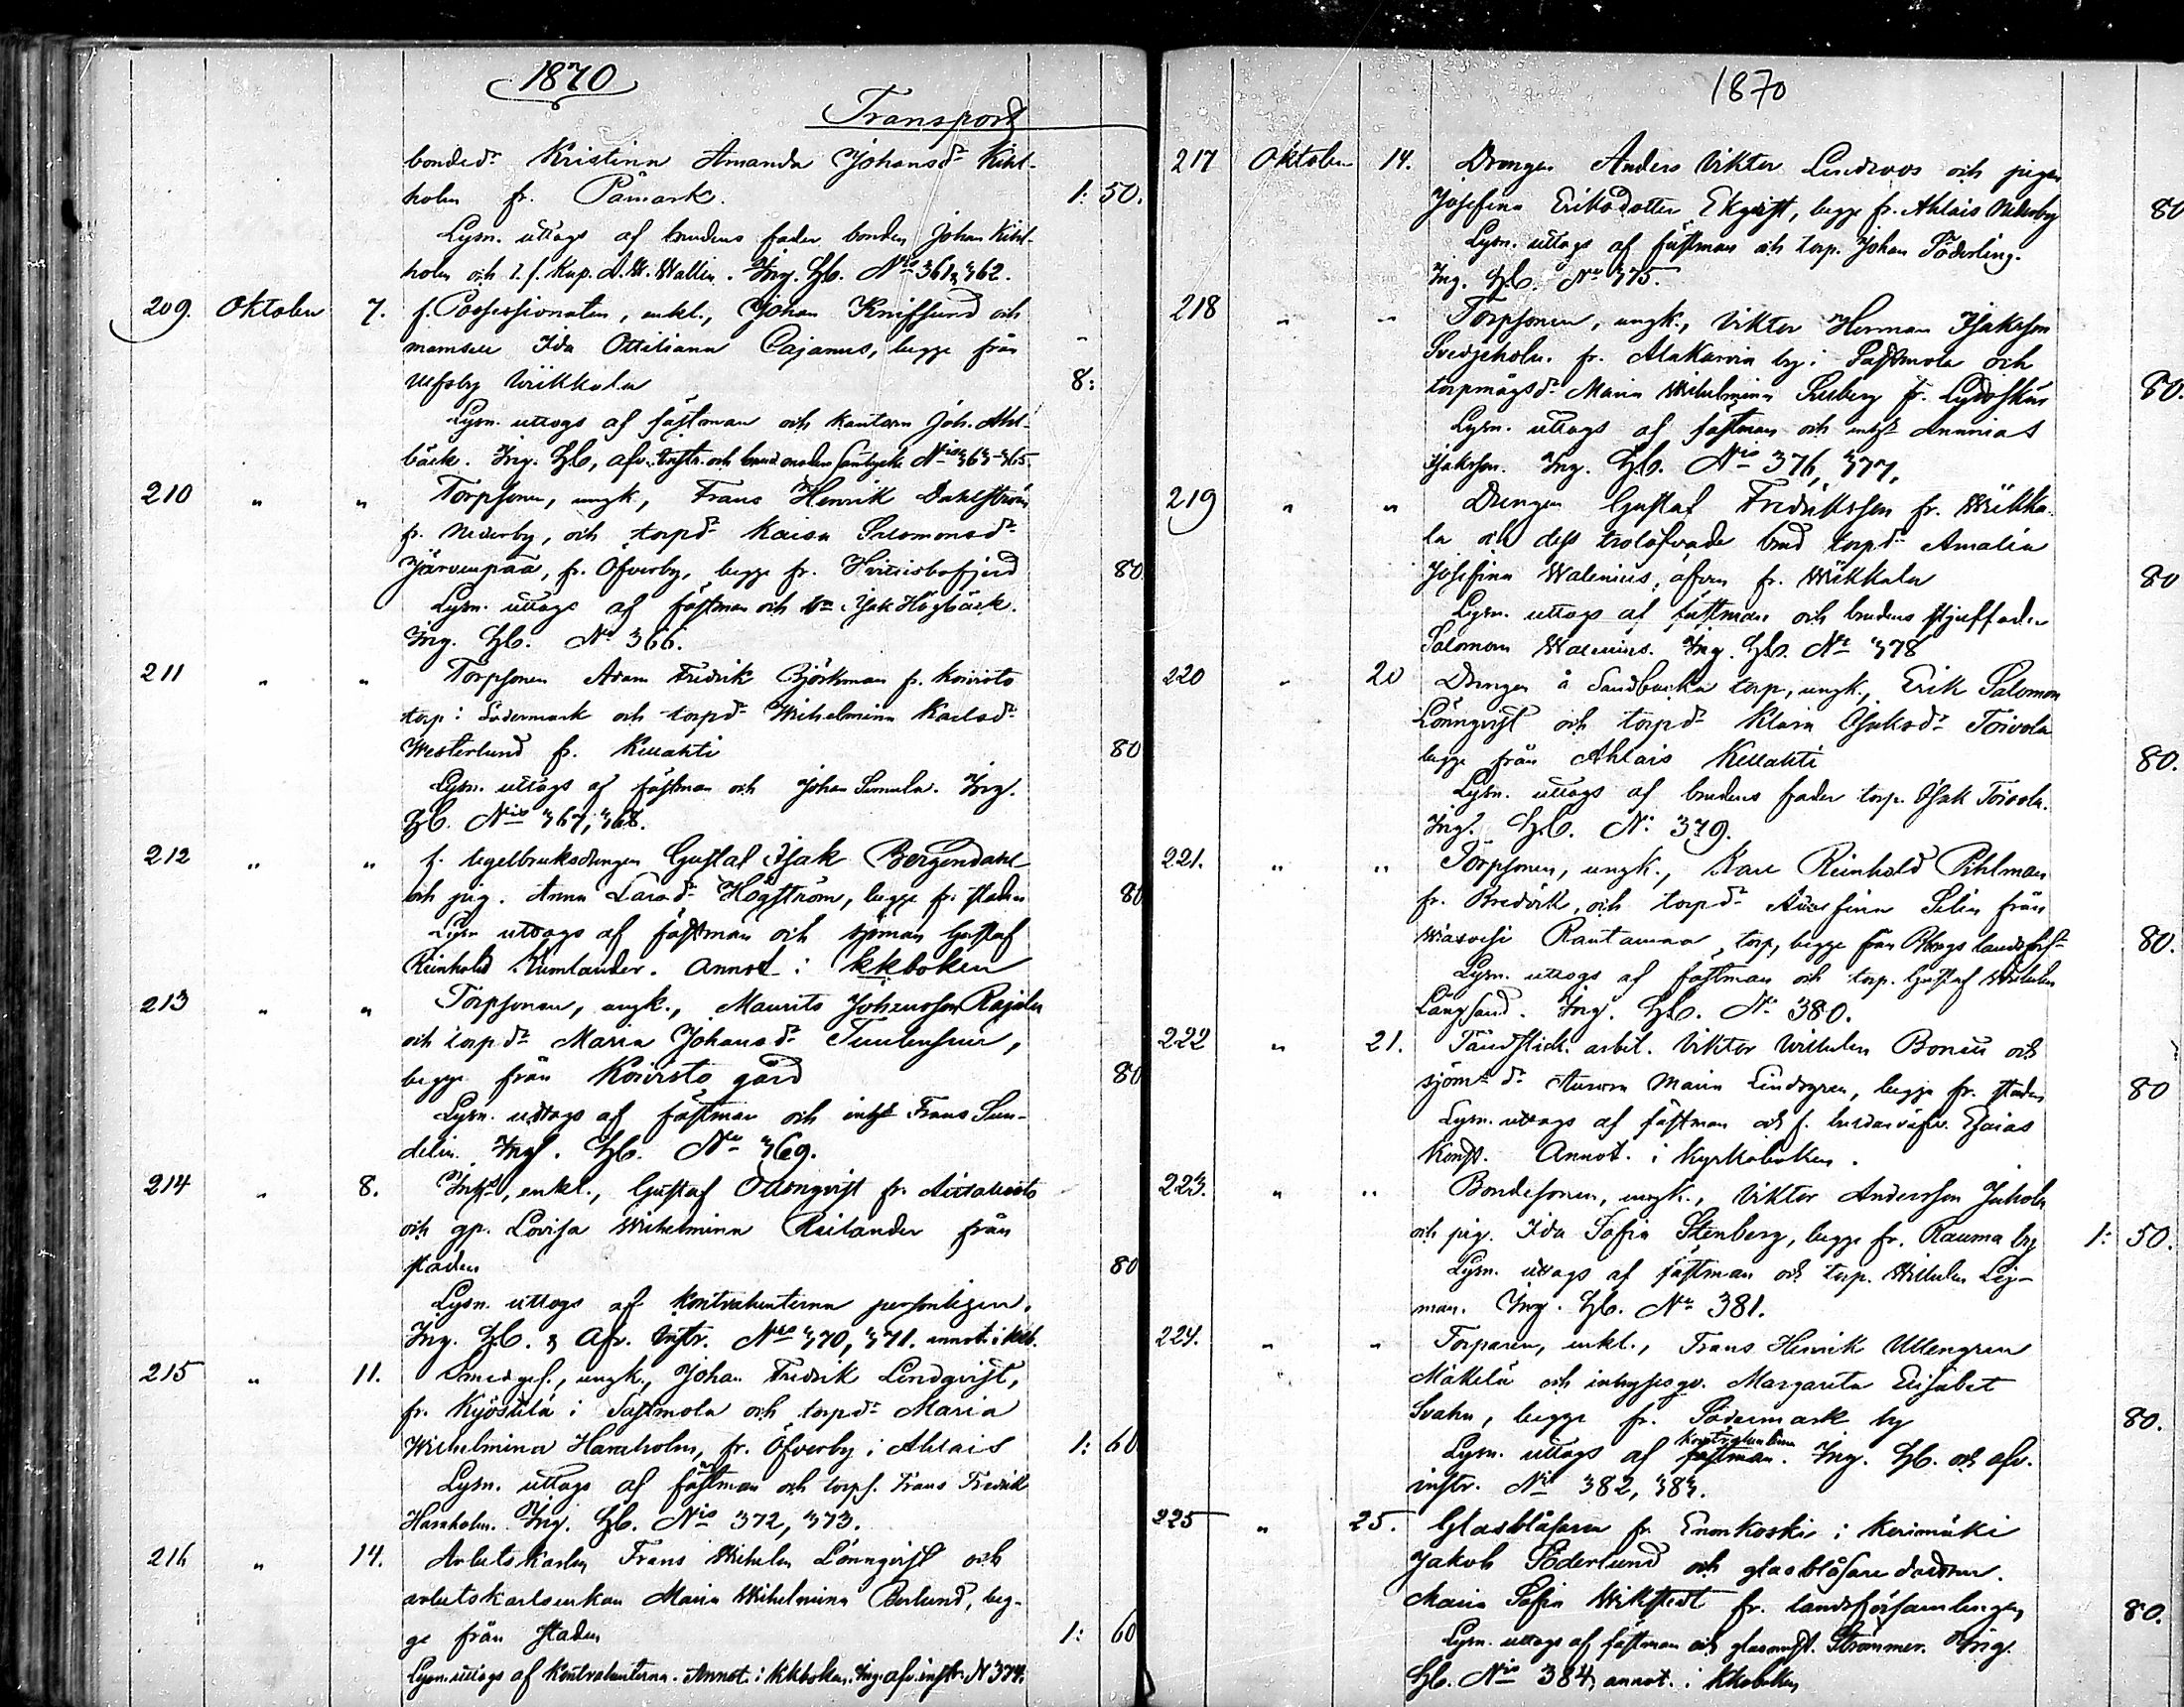 1870
Transport
bondedr Kristina Amanda Johansdr Kihl-
holm fr. Påmark. 1: 50.
Lysn. uttogs af brudens fader bonden Johan Kihl-
holm och t. f. Kap. A. W. Wallin. Ing. Gb. Nis 361, 362.
209. Oktober 7. f. Possessionaten, enkl., Johan Knifsund och
mamsell Ida Ottiliana Cajanus, begge från
Ulfsby Wikkala 8: "
Lysn. uttogs af fästman och kantorn Joh. Ahl-
bäck. Ing. Gb, afv. instr. och brud Nis 363-365.
210 " " Torpsonen, ungk, Frans Henrik Dahlström
fr. Nederby, och torpdr Kaisa Salomonsdr
Järvenpää, fr. Öfverby, begge fr. Hvittisbofjerd 80
Lysn. uttogs af fästman och Isak Högbäck.
Ing. Gb. No 366.
211 " " Torpsonen Adam Fredrik Björkman fr. Koivisto
torp i Södermark och torpdr Wilhelmina Karlsdr
Westerlund fr. Kellahti 80
Lysn. uttogs af fästman och Johan Sumula. Ing.
Gb. Nis 367, 368.
212 " " f. tegelbruksdrengen Gustaf Isak Bergendahl
och pig. Anna Larsdr Högström, begge fr. staden 80
Lysn uttogs af fästman och sjöman Gustaf
Reinhold Kumlander. Annot i kkboken
213 " " Torpsonen, ungk., Maurits Johansson Rajala
och torpdr Maria Johansdr Tuulensuu,
begge från Koivisto gård 80
Lysn. uttogs af fästman och inhs Frans Sun-
delin. Ing. Gb. No 369.
214 " 8. Inhs, enkl., Gustaf Ottonqvist fr.
och gp. Lovisa Wilhelmina Reilander från
staden 80
Lysn. uttogs af kontrahenterna personligen.
Ing. Gb. & Afv. instr. Nis 370, 371. annot. i kkb.
215 " 11. Smedges., ungk., Johan Fredrik Lindqvist,
fr. Kyöstilä i Sastmola och torpdr Maria
Wilhelmina Haraholm, fr. Öfverby i Ahlais 1: 60
Lysn. uttogs af fästman och torps. Frans Fredrik
Haraholm. Ing. Gb. Nis 372, 373.
216 " 14. Arbetskarlen Frans Wilhelm Lönnqvist och
arbetskarlsenkan Maria Wilhelmina Berlund, beg-
ge från staden 1: 60
Lysn. uttogs af kontrahenterna. Annot. i kkboken. Ing. afv. instr. N 374.
1870
217 Oktober 14. Drengen Anders Viktor Lindroos och pigan
Josefina Eriksdotter Ekqvist, begge fr. Ahlais Nederby 80
Lysn. uttogs af fästman och torp. Johan Söderling.
Ing. Gb. No 375.
218 " " Torpsonen, ungk., Viktor Herman Isaksson
Svedjeholm. fr. Alakarvia by i Sastmola och
torpmågsdr Maria Wilhelmina Seeberg fr. 80.
Lysn. uttogs af fästman och inhs Ananias
Isaksson. Ing. Gb. Nis 376, 377.
219 " " Drengen Gustaf Fredriksson fr. Wikka-
la och dess trolofvade brud torpdr Amalia
Josefina Walenius, äfven fr. Wikkala 80
Lysn. uttogs af fästman och brudens styffader
Salomon Walenius. Ing. Gb. No 378
220 " 20 Drengen å Sandbacka torp, ungk., Erik Salomon
Lönnqvist och torpdr Klara Isaksdr Toivola
begge från Ahlais Kellahti 80.
Lysn. uttogs af brudens fader torp. Isak Toivola.
Ing. Gb. No 379.
221. " " Torpsonen, ungk., Karl Reinhold Pihlman
fr. Bredvik, och torpdr Josefina Selin från
Wiasvesi Rantanna torp, begge från Bbgs landsförs. 80.
Lysn. uttogs af fästman och torp. Gustaf Wilhelm
Långsand. Ing. Gb. No 380.
222 " 21. Tändstick. arbet. Viktor Wilhelm Bonell och
sjöms dr Aurora Maria Lindgren, begge fr. staden 80
Lysn. uttogs af fästman och f. Esaias
Annot. i kyrkoboken.
223. " " Bondesonen, ungk., Viktor Andersson Juhola
och pig. Ida Sofia Stenberg, begge fr. Rauma by 1: 50.
Lysn. uttogs af fästman och torp. Wilhelm Lej-
man. Ing. Gb. No 381.
224. " " Torparen, enkl., Frans Henrik Ullengren
Mäkelä och inhyses gv. Margareta Elisabet
Svahn, begge fr. Södermark by 80.
Lysn. uttogs af kontrahenterna fästman. Ing. Gb. och afv.
instr. Nis 382, 383.
225 " 25. Glasblåsaren fr. Enonkoski i Kerimäki
Jakob Söderlund och glasblåsare dottren.
Maria Sofia Wikstedt fr. landsförsamlingen 80.
Lysn. uttogs af fästman och glasmäst. Strömmer. Ing.
Gb. Nis 384, annot. i kkboken